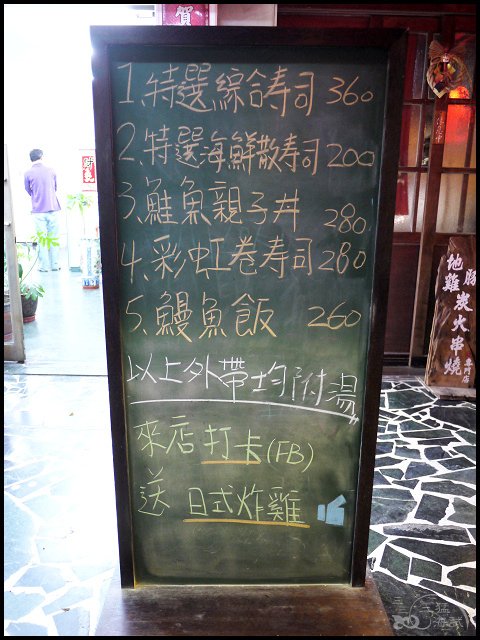 賀
1、特選綜合壽司 360
2、特選海鮮散壽司 200
3、鮭魚親子丼 280
4、彩虹卷壽司 280
5、鰻魚飯 260
以上外帶均附湯
來店打卡(FB)
送 日式炸雞
地雞炭火串燒
專門店